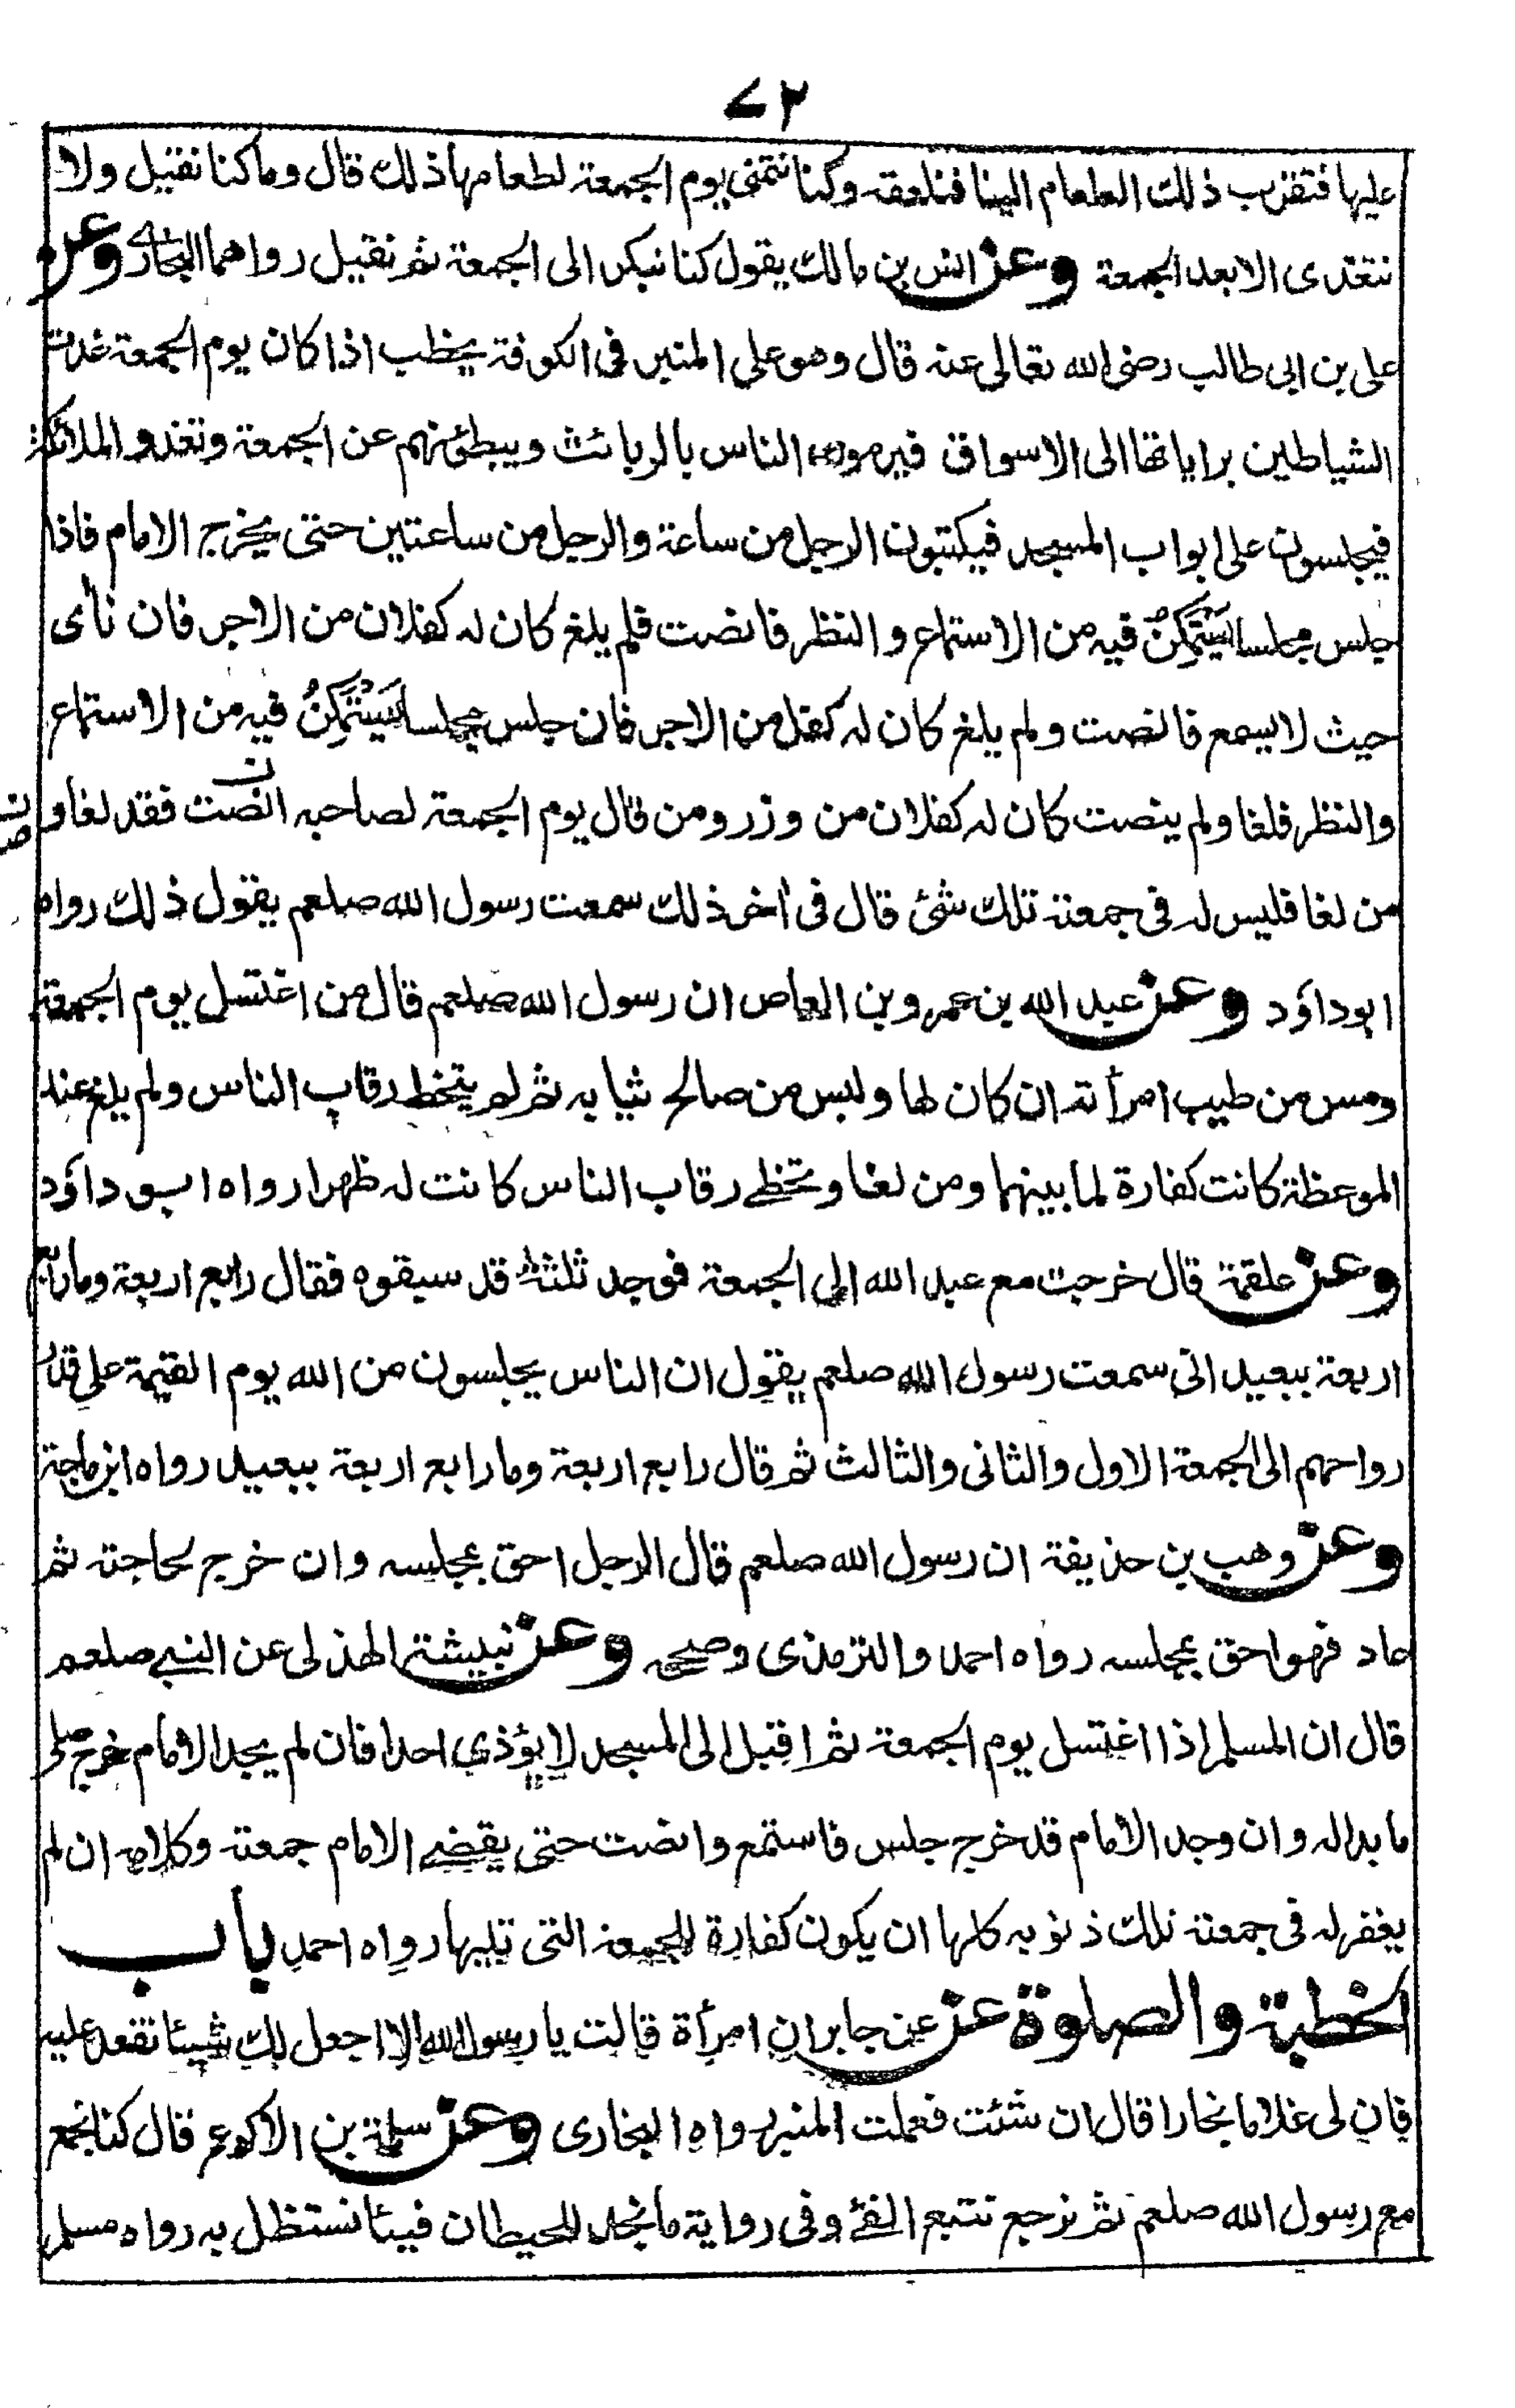 ٧٢
عليها فتقرب ذلك الطعام الينا فنلعقه وكنا نتمنى يوم الجمعة لطعامها ذلك قال وما كنا نقيل ولا
نتغدى الا بعد الجمعة وعن انس بن مالك يقول كنا نبكر الى الجمعة ثم نقيل رواهما البخاري وعن
على بن ابى طالب رضى الله تعالى عنه قال وهو على المنبر فى الكوفة يخطب اذا كان يوم الجمعة غدت
الشياطين براياتها الى الاسواق فيرمون الناس بالربائث ويبطئونهم عن الجمعة وتغدو الملائكة
فيجلسون على ابواب المسجد فيكتبون الرجل من ساعة والرجل من ساعتين حتى يخرج الامام فاذا
جلس مجلسا يَسْتَمْكِنُ فيه من الاستماع والنظر فانصت فلم يلغ كان له كفلان من الاجر فان نأى
حيث لا يسمع فانصت ولم يلغ كان له كفل من الاجر فان جلس مجلسا يَسْتَمْكِنُ فيه من الاستماع
والنظر فلغا ولم ينصت كان له كفلان من وزر ومن قال يوم الجمعة لصاحبه انصت فقد لغا و
من لغا فليس له فى جمعته تلك شئ قال فى أخر ذلك سمعت رسول الله صلعم يقول ذلك رواه
ابوداؤد وعن عبد الله بن عمرو بن العاص ان رسول الله صلعم قال من اغتسل يوم الجمعة
ومس من طيب امرأته ان كان لها ولبس من صالح ثيابه ثم لم يتخط رقاب الناس ولم يلغ عند
الموعظة كانت كفارة لما بينهما ومن لغا وتخطے رقاب الناس كانت له ظهرا رواه ابو داؤد
وعن علقمة قال خرجت مع عبد الله الى الجمعة فوجد ثلثة قد سبقوه فقال رابع اربعة وما رابع
اربعة ببعيد انى سمعت رسول الله صلعم يقول ان الناس يجلسون من الله يوم القيمة على قدر
رواحهم الى الجمعة الاول والثانى والثالث ثم قال رابع اربعة وما رابع اربعة ببعيد رواه ابن ماجة
وعن وهب بن حذيفة ان رسول الله صلعم قال الرجل احق بمجلسه وان خرج لحاجته ثم
عاد فهو احق بمجلسه رواه احمد والترمذى وصححه وعن نبيشة الهذلى عن النبے صلعم
قال ان المسلم اذا اغتسل يوم الجمعة ثم اقبل الى المسجد لا يؤذي احدا فان لم يجد الامام خرج صلى
ما بدا له وان وجد الامام قد خرج جلس فاستمع وانصت حتى يقضے الامام جمعته وكلامه ان لم
يغفر له فى جمعته تلك ذنوبه كلها ان يكون كفارة للجمعة التى تليها رواه احمد باب
الخطبة والصلوة عن عن جابر ان امرأة قالت يا رسول الله الا اجعل لك شيئا تقعد عليه
فان لى غلاما نجارا قال ان شئت فعملت المنبر رواه البخارى وعن سلمة بن الاكوع قال كنا نجمع
مع رسول الله صلعم ثم نرجع نتتبع الفئ وفى رواية ما نجد للحيطان فيئا نستظل به رواه مسلم